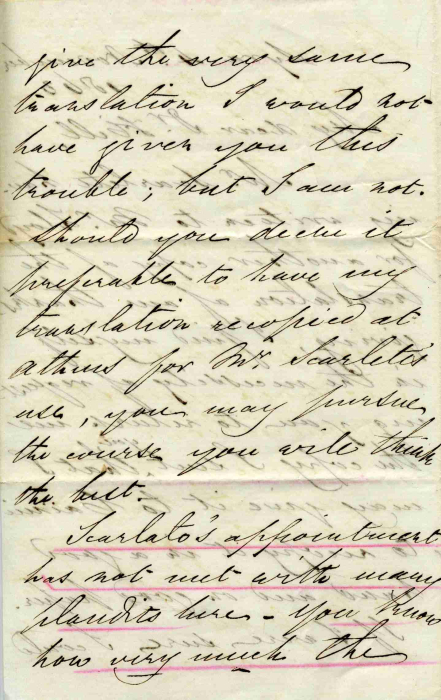 give the very same
translation I would not
have given you this
trouble; but I am not.
Should you deem it
preferable to have my
translation recopied at
Athens for Mr. Scarlato's
use, you may pursue
the course you will think
the best.
Scarlato's appointment
has not met with many
plaudits here - You know
how very much the